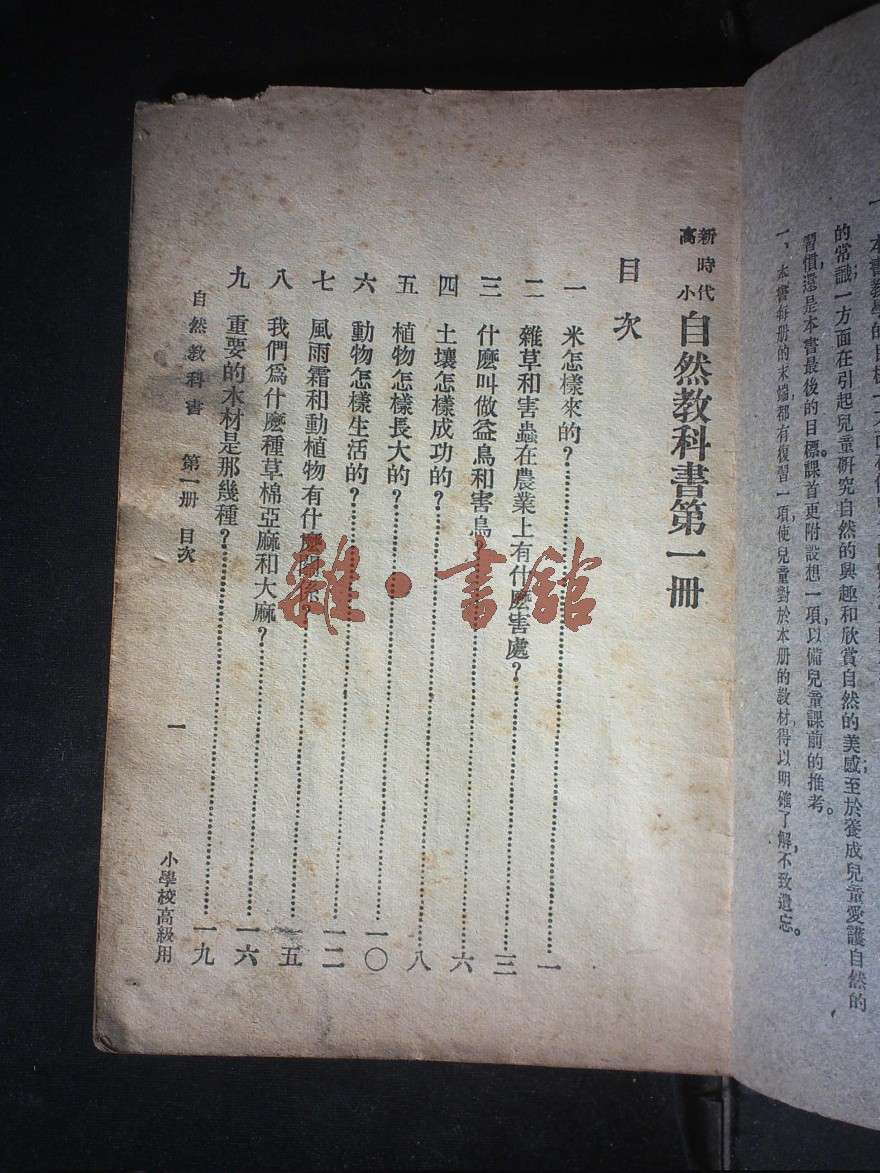 一、本書教學的目標一方面在
的常識;一方面在引起兒童研究自然的興趣和欣賞自然的美感;至於養成兒童愛護自然的
習慣,還是本書最後的目標。課首更附設想一項,以備兒童課前的推考。
一、本書每册的末端,都有復習一項,使兒童對於本册的教材,得以明確了解,不致遺忘。
新時代
高小
自然教科書第一冊
目次
一 米怎樣來的?……一
二 雜草和害蟲在農業上有什麽害處?……三
三 什麽叫做益鳥和害鳥?……六
四 土壤怎樣成功的?……八
五 植物怎樣長大的?……一〇
六 動物怎樣生活的?……一二
七 風雨霜和動植物有什麽關係?……一五
八 我們爲什麽種草棉亞麻和大麻?……一六
九 重要的木材是那幾種?……一九
自然教科書 第一册 目次 一 小學校高級用
雜·書舘